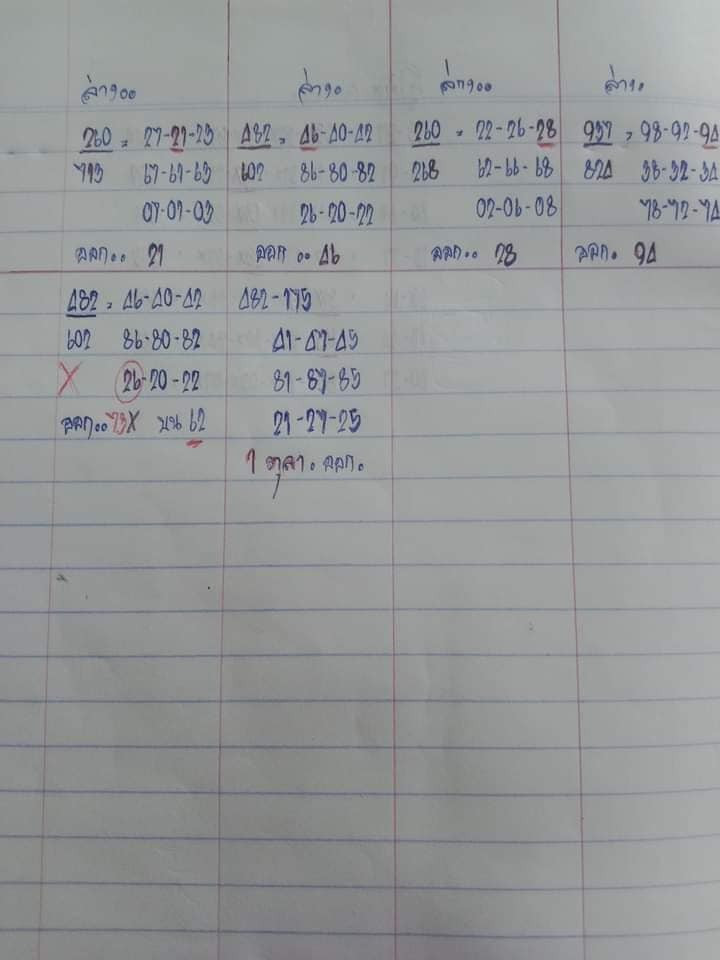 ล่าง๐๐
260 = 27-21-23
713 67-61-63
07-01-03
ออก.. 21
ล่าง๐
482 = 46-40-42
602 86-80-82
26-20-22
ออก .. 46
ล่าง๐๐
260 = 22-26-28
268 62-66-68
02-06-08
ออก.. 28
ล่าง.
937 = 98-92-94
824 38-32-34
78-72-74
ออก. 94
482 = 46-40-42
602 86-80-82
X 26-20-22
ออก.. 73X บน 62
482-175
41-47-45
81-87-85
21-27-25
1 ตุลา. ออก.